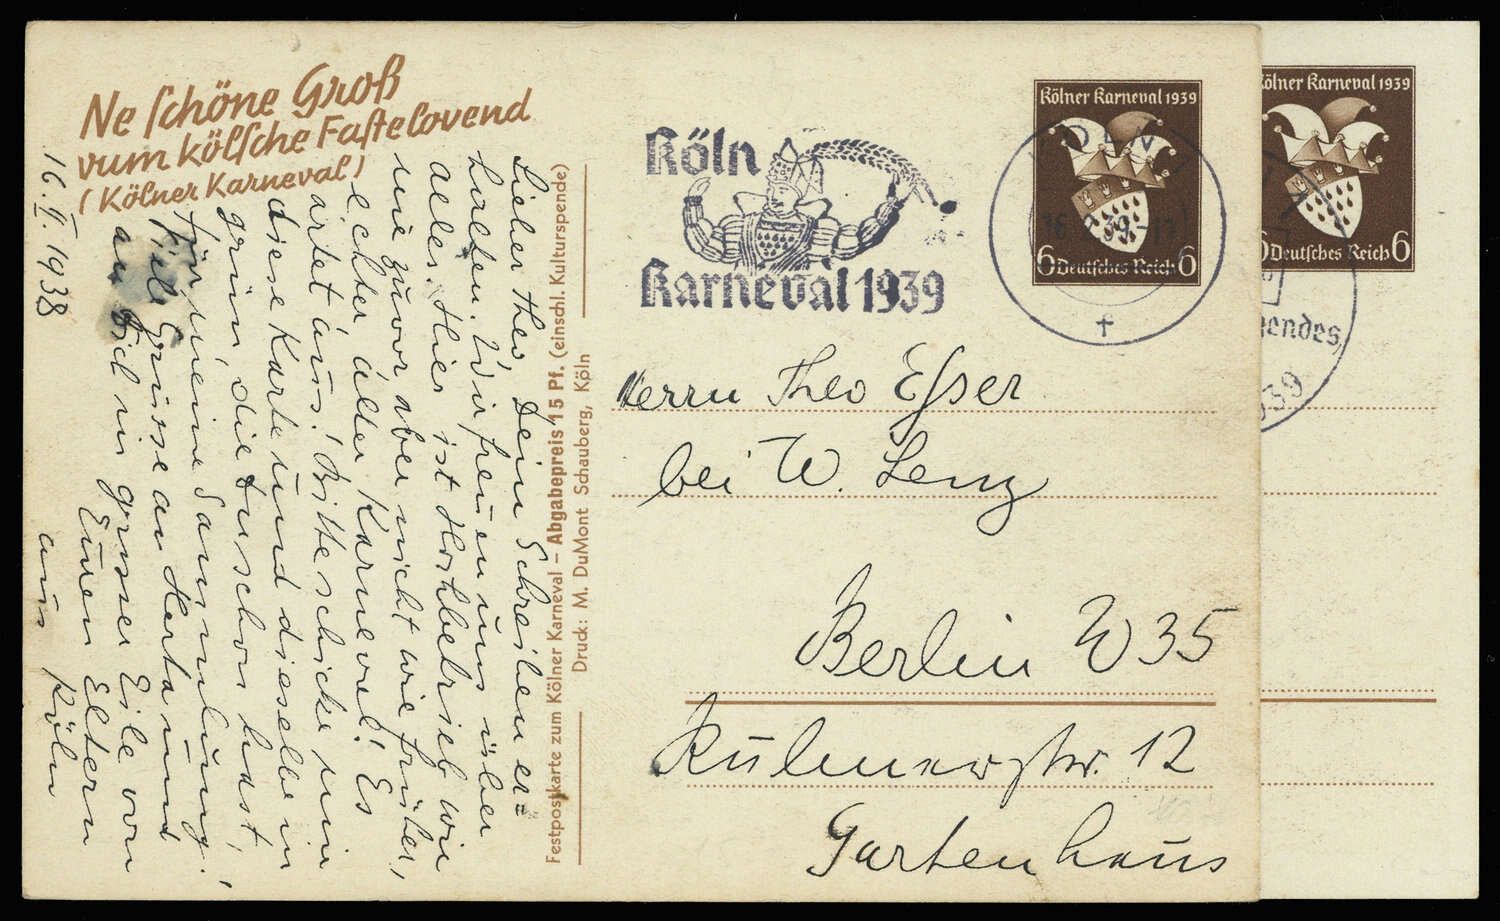 Ne schöne Groß
vum kölsche Fastelovend
(Kölner Karneval)
16. II. 1938
Lieber Theo, Dein Schreiben er=
halten. Wir freuen uns über
alles. Hier ist Hochbetrieb wie
nie zuvor aber nicht wie früher,
echter alter Karneval! Es
artet aus! Bitte schicke mir
diese Karte und dieselbe in
grün, die Du schon hast,
für meine Sammlung!
Viele Grüsse an Herta und
an Dich in grosser Eile von
Euren Eltern
aus Köln
Festpostkarte zum Kölner Karneval – Abgabepreis 15 Pf. (einschl. Kulturspende)
Druck: M. DuMont Schauberg, Köln
Köln
Karneval 1939
KÖLN 1
16.2.39.-17
Kölner Karneval 1939
6 Deutsches Reich 6
Herrn Theo Esser
bei W. Lenz
Berlin W 35
Kulmerstr. 12
Gartenhaus
Kölner Karneval 1939
6 Deutsches Reich 6
endes
939